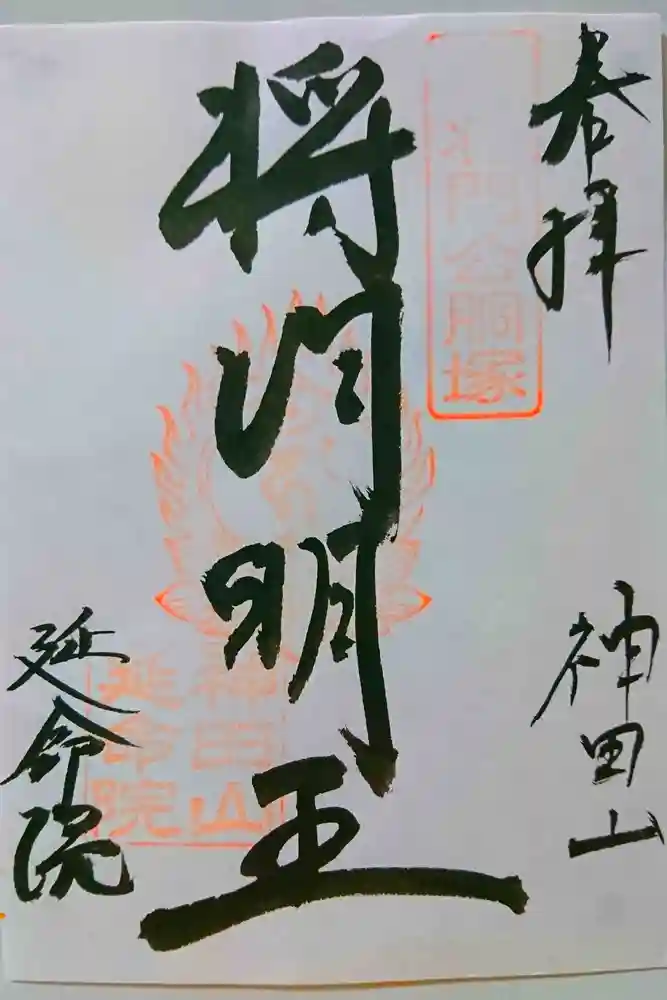 奉拝
神田山
将門公胴塚
将门明王
神田山
延命院
延命院